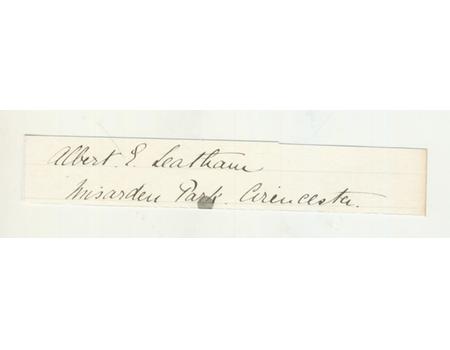 Albert. E. Leatham
Misarden Park. Cirencester.